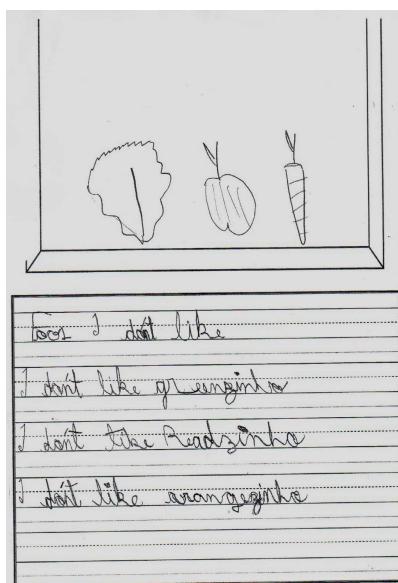 Foos I don't like
I don't like greenzinho
I don't like Readzinho
I don't like orangezinho